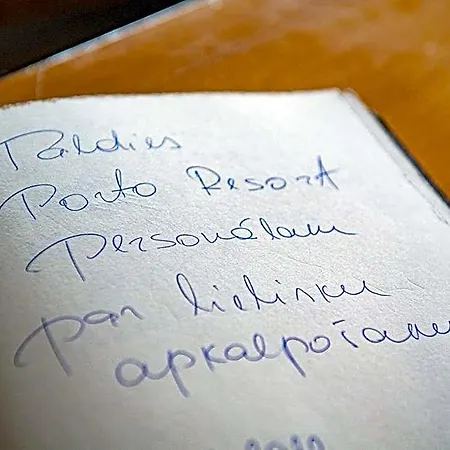 Paldies
Porto Resort
Personālam
par lielisku
apkalpošanu